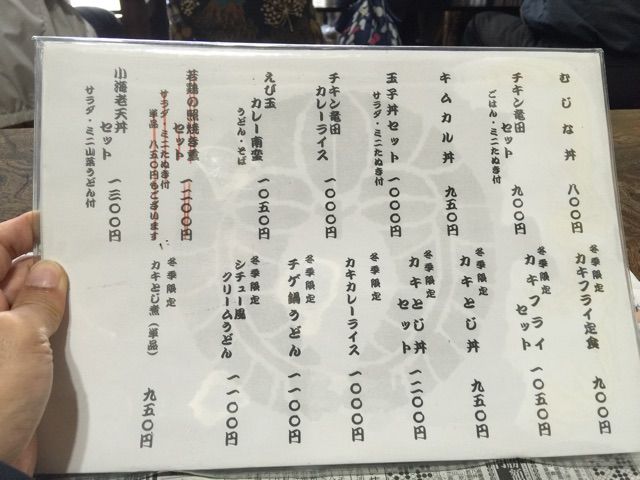 むじな丼 八〇〇円
チキン竜田
セット 九〇〇円
ごはん・ミニたぬき付
キムカル丼 九五〇円
玉子丼セット 一〇〇〇円
サラダ・ミニたぬき付
チキン竜田
カレーライス 一〇〇〇円
えび玉
カレー南蛮 一〇五〇円
うどん・そば
若鶏の
セット 一一〇〇円
サラダ・ミニたぬき付
単品 八五〇円もございます!
小海老天丼
セット 一三〇〇円
サラダ・ミニ山菜うどん付
冬季限定
カキフライ定食 九〇〇円
冬季限定
カキフライ
セット 一〇五〇円
冬季限定
カキとじ丼 九五〇円
冬季限定
カキとじ丼
セット 一二〇〇円
冬季限定
カキカレーライス 一〇〇〇円
冬季限定
チゲ鍋うどん 一一〇〇円
冬季限定
シチュー風
クリームうどん 一一〇〇円
冬季限定
カキとじ煮(単品) 九五〇円